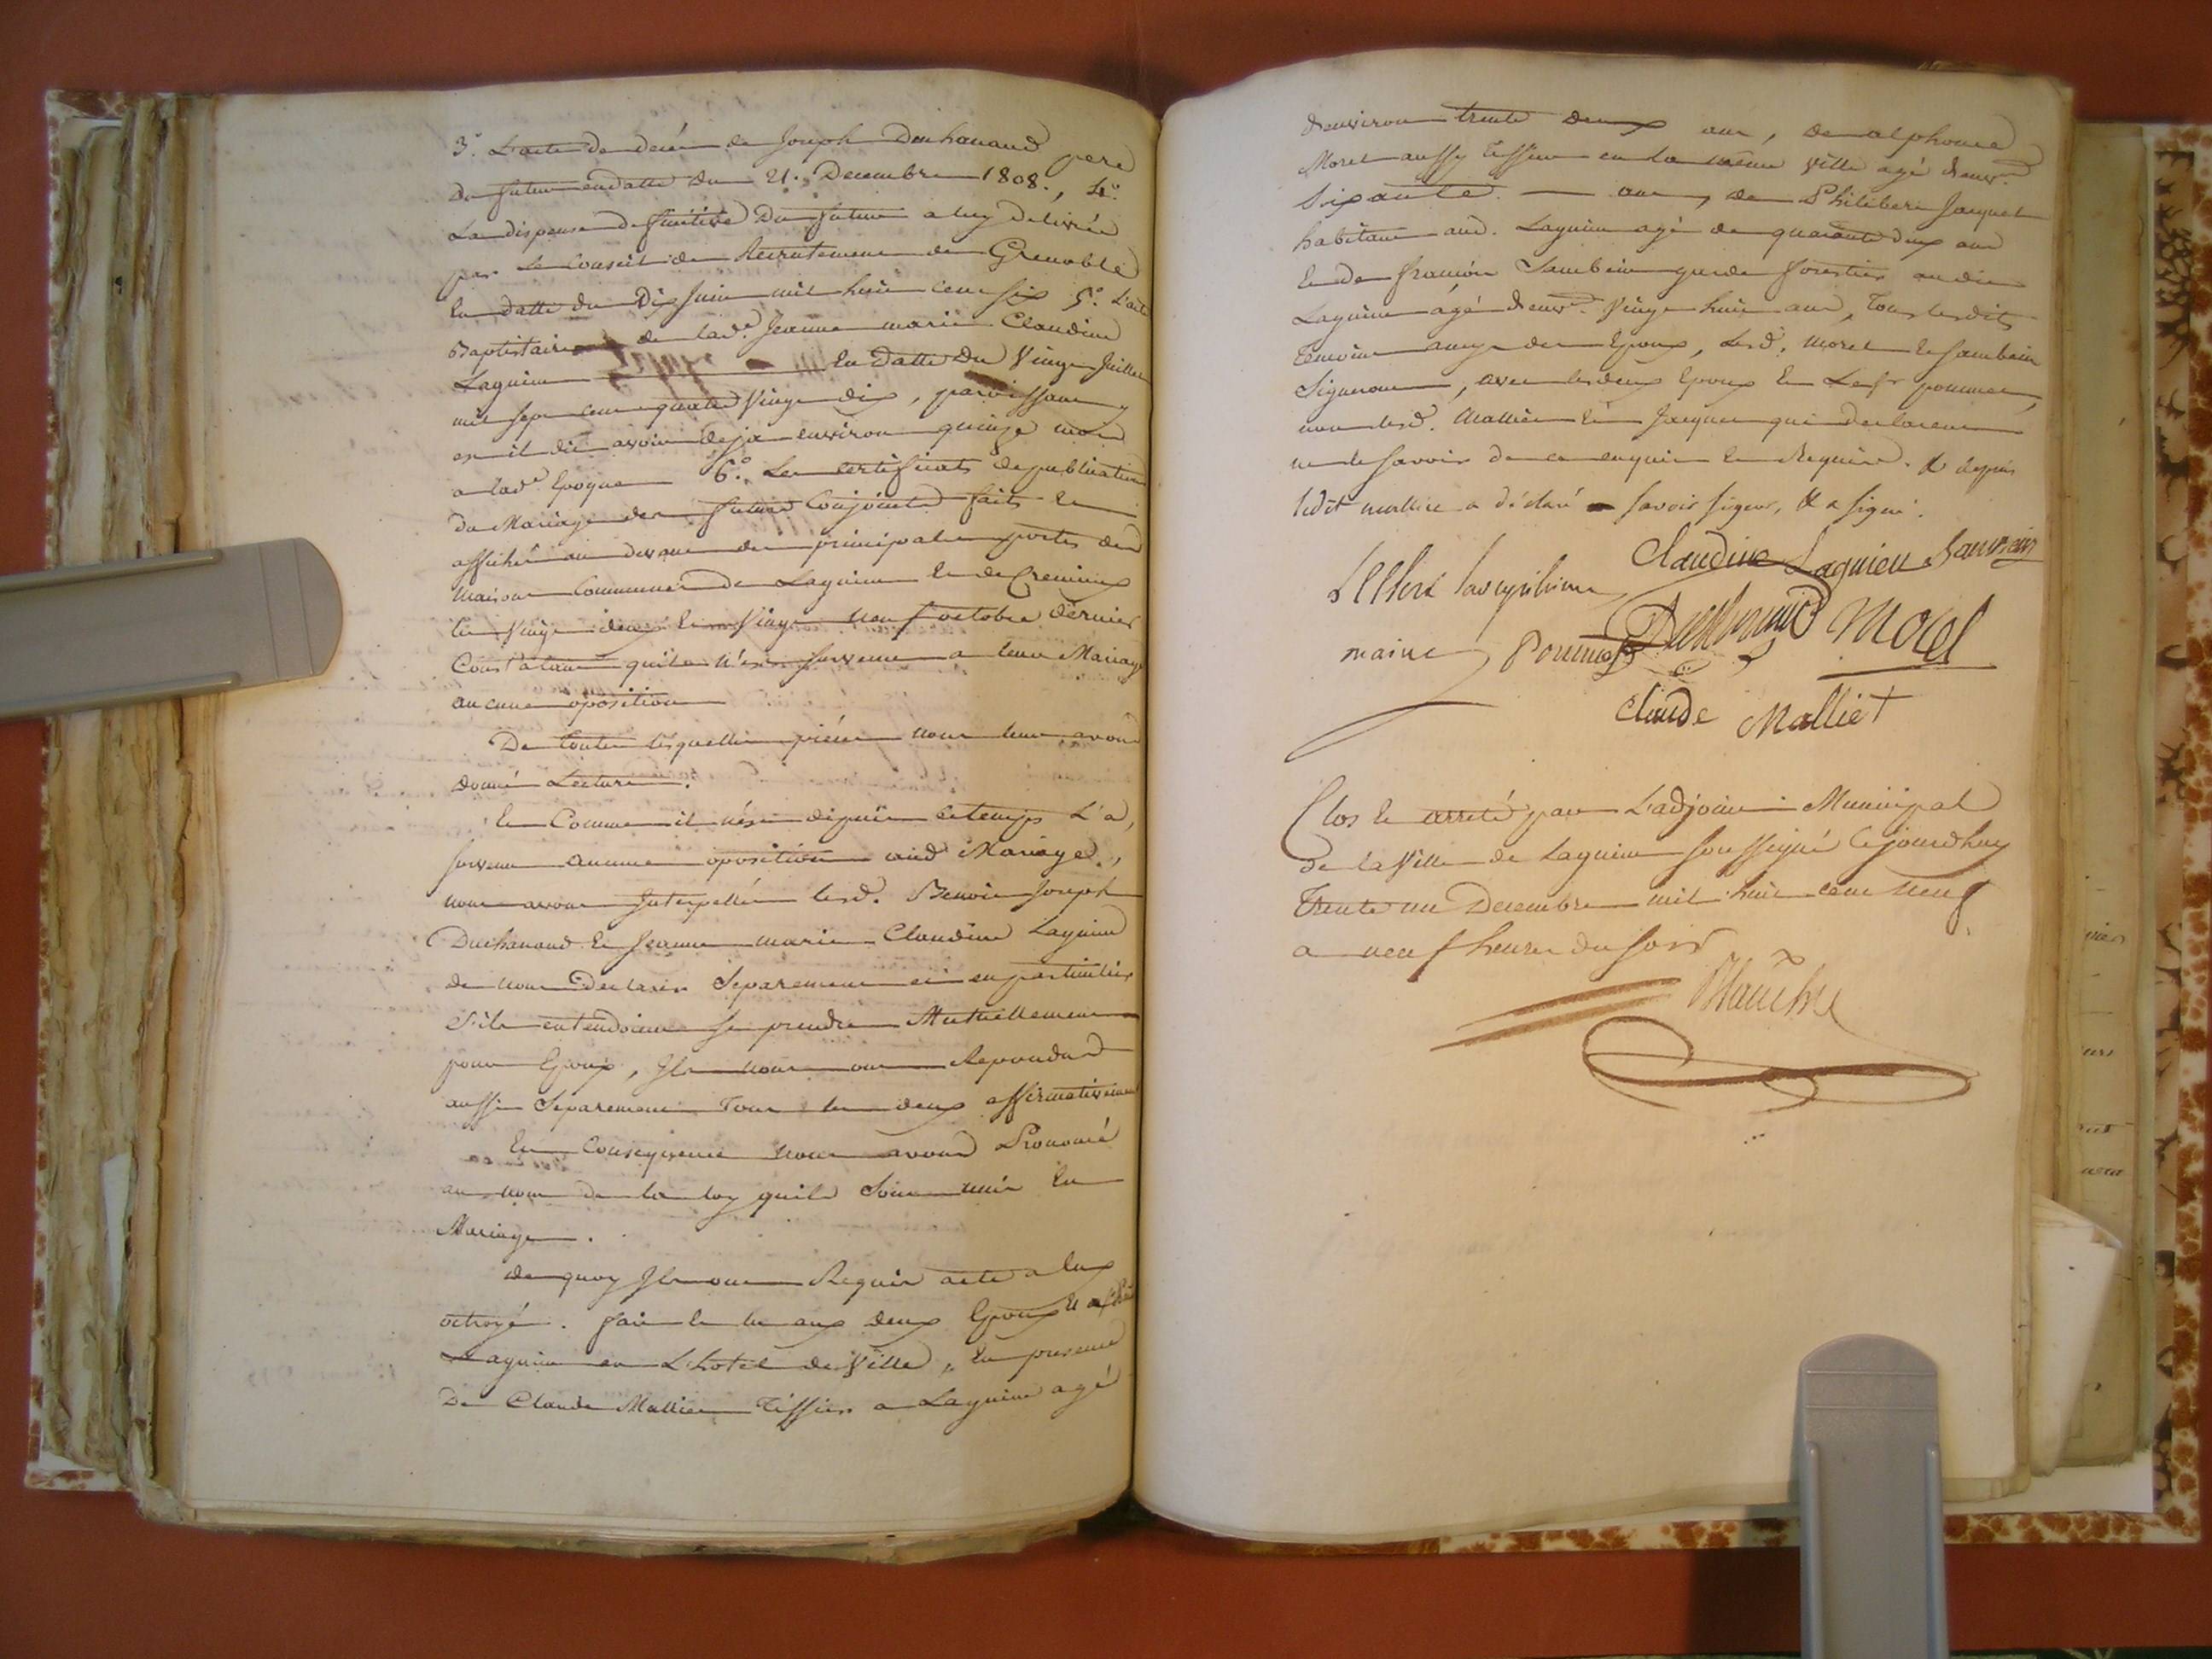 3.° L'acte de decés de Joseph Duchanaud pere
du futur en datte du 21. Decembre 1808., 4.°
La dispense definitive du futur a luy delivrée
par le Conseil de Recrutement de Grenoble
En datte du Dix Juin mil huit cent six 5.° L'acte
Baptistaire de lad.e Jeanne marie Claudine
Lagnieu En datte du Vingt Juillet
mil sept cent quatre Vingt dix, paroissant y
est il dit avoir deja environ quinze mois
a lad.e Epoque 6.° Les certificats de publication
du Mariage des futurs Conjoints faits et
affichés au devant des principales portes des
maisons Communes de Lagnieu et de Cremieux
les Vingt deux et Vingt neuf octobre dernier
Constatant qu'il n'est survenu a leur Mariage
aucune oposition
De toutes lesquelles piéces nous leur avons
donné Lecture.
Et Comme il n'est depuis ce temps L'a,
survenu aucune oposition aud Mariage,
nous avons Interpellés lesd. Benoit Joseph
Duchanaud et Jeanne marie Claudine Lagnieu
de nous Declarer Separement et en particulier
S'ils entendoient se prendre Mutuellement
pour Epoux, Ils nous ont Repondus
aussi Separement Tous les deux affirmativement
En Consequence nous avons Prononcé
au nom de la loy quils sont unis En
Mariage.
de quoy Ils ont Requis acte a eux
octroyé. fait et lu aux deux Epoux et
Lagnieu en L'hotel de Ville, En presence
De Claude Mallier Tissier a Lagnieu agé
d'environ trente deux ans, de alphonce
Morel aussy tissier en la même Ville agé d'env.on
soixante ans, de Philibert Jacquet
habitant aud. Lagnieu agé de quarante deux ans
et de françois Sambein garde forestier au dit
Lagnieu agé d'env.on Vingt huit ans, tous lesdits
temoins amys des Epoux, Lesd. Morel et Sambein
Signeront, avec les deux Epoux et Le sr pommer,
non lesd. Mallier et Jacquet qui declarent
ne le savoir de ce enquis et Requis. & depuis
ledit mallier a déclaré savoir signer, & a signé.
Claudine Lagnieu Sambein
maire Pommer Duchanaud Morel
Claude Malliet
Clos et arreté par L'adjoint Municipal
de la Ville de Lagnieu soussigné Cejourdhuy
Trente un Decembre mil huit cent neuf
a neuf heures du soir